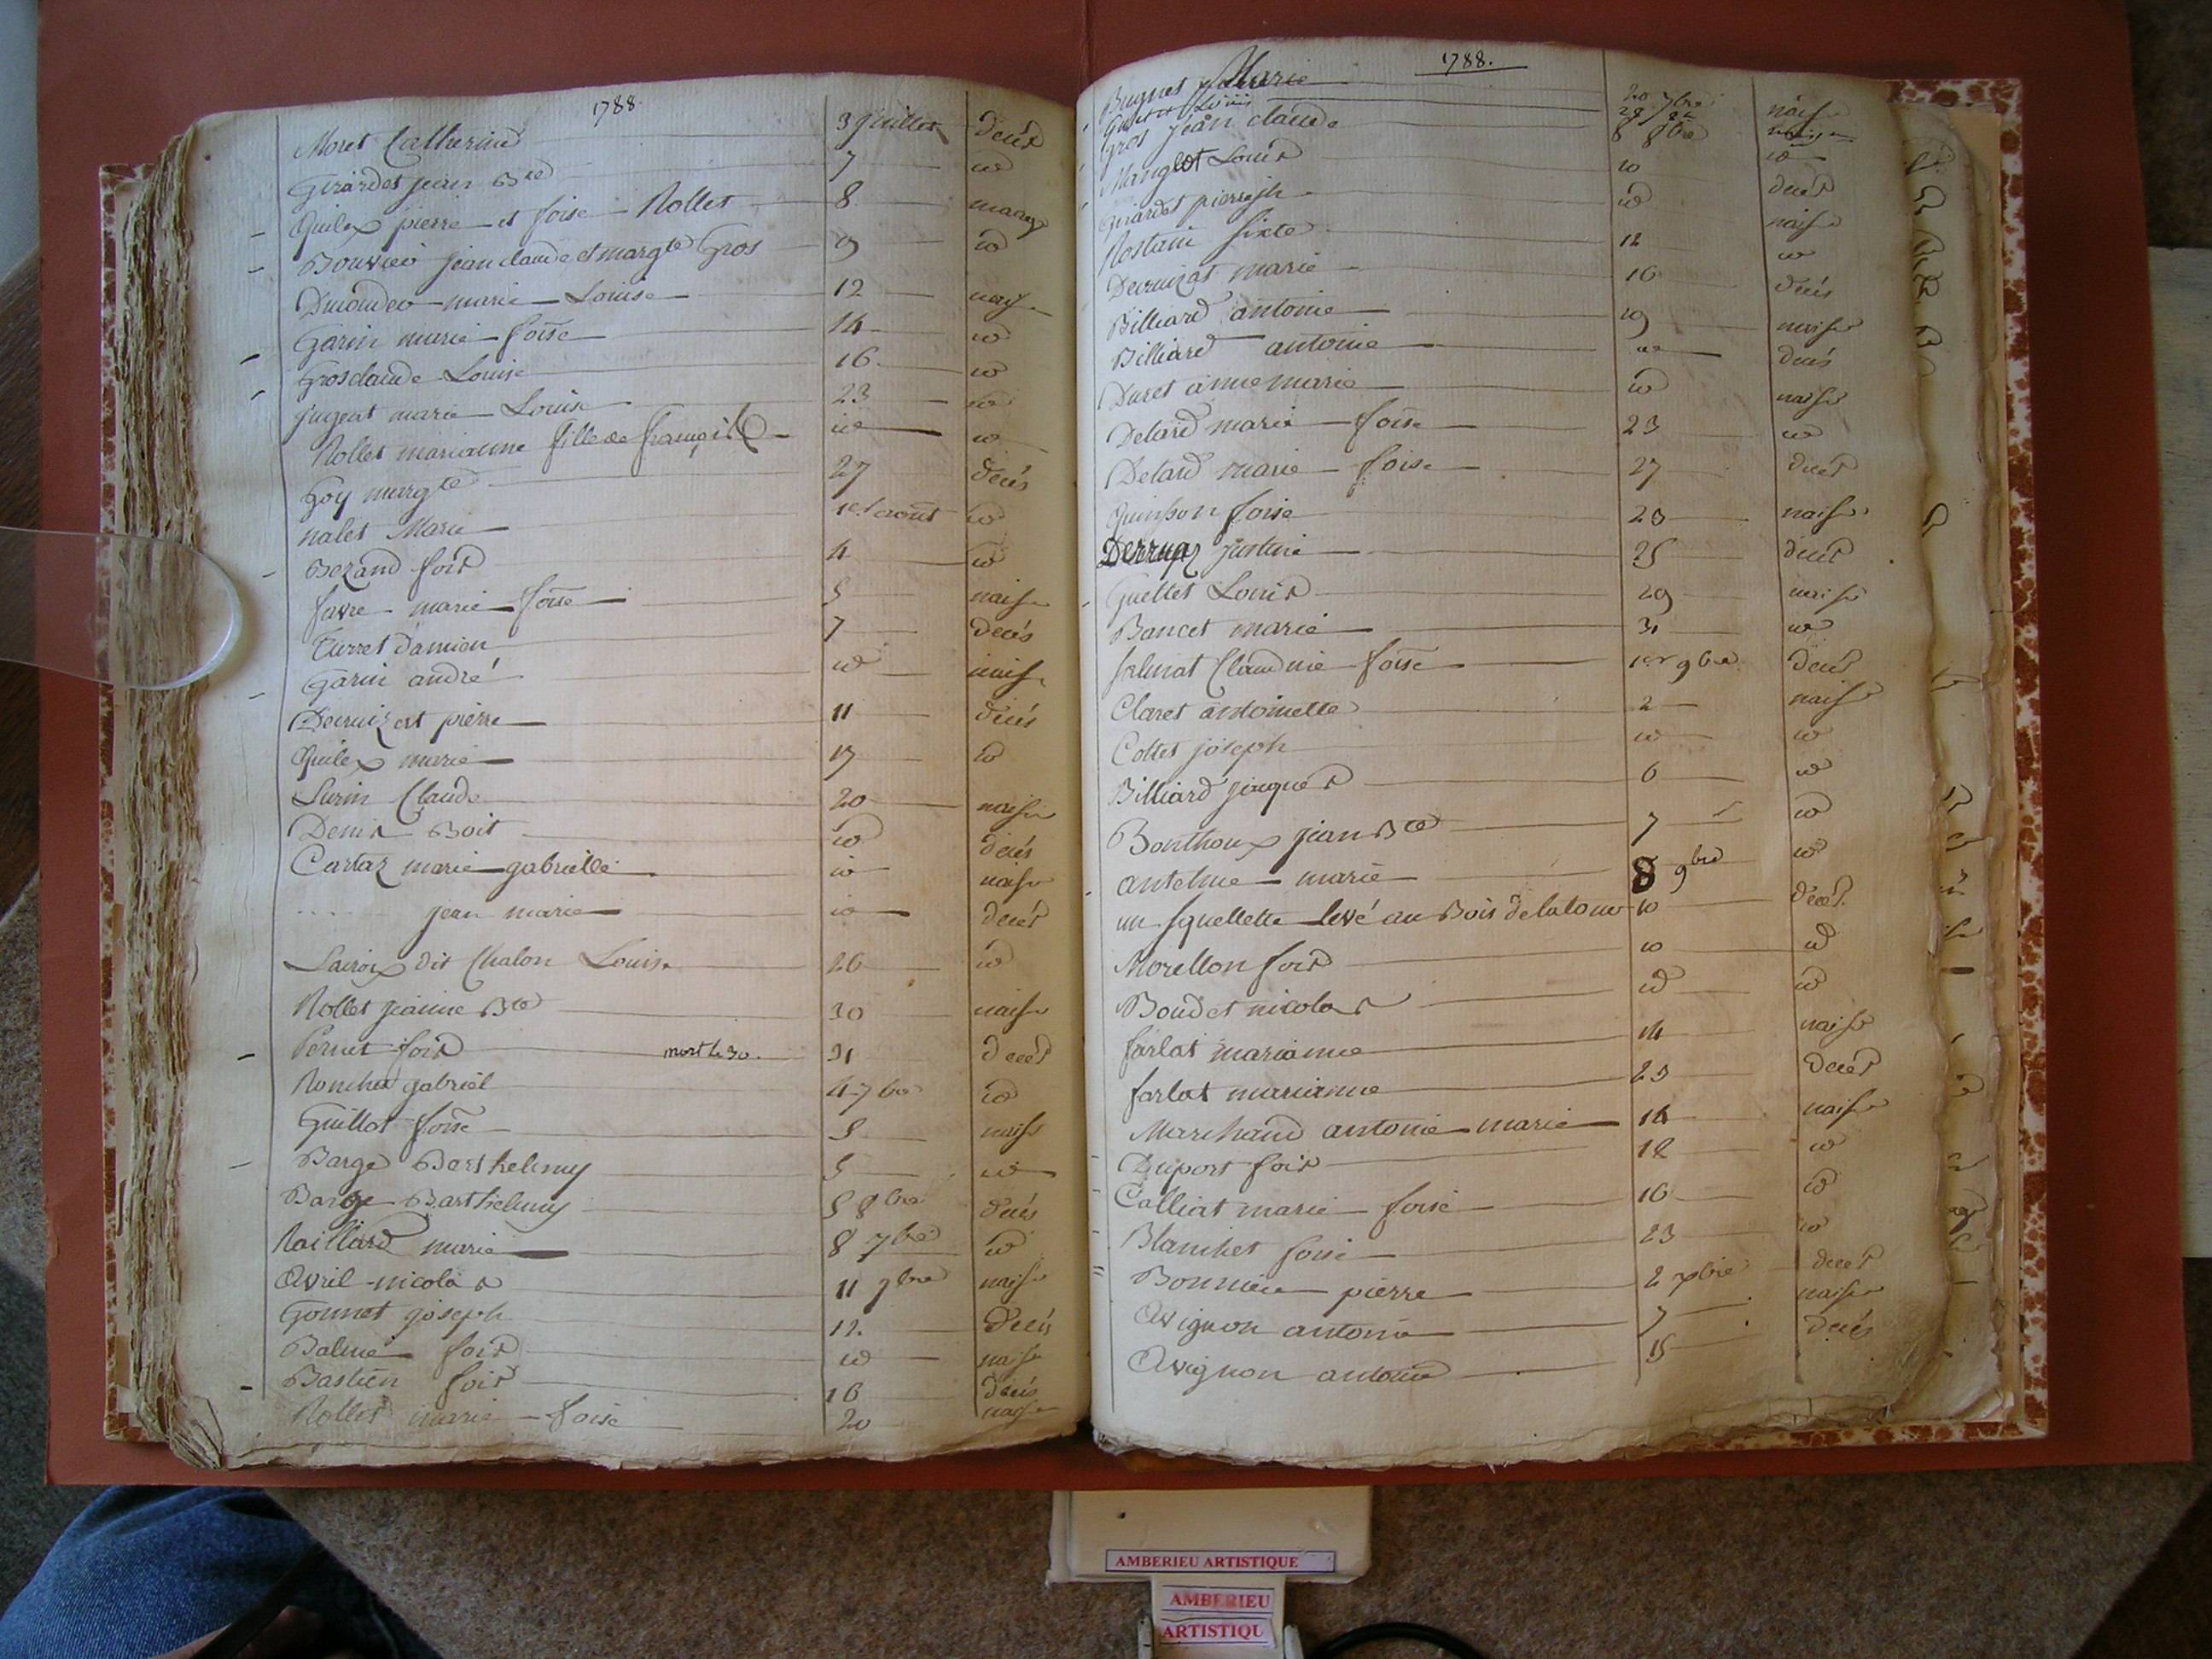 1788.
Moret Catherine 3 juillet decès
Girardet jean Bte 7 id
Quilex pierre et foise Rollet 8 mariage
Bouvier jean claude et margte Gros 9 id
marie Louise 12 naisce
Garin marie foise 14 id
Grosclaude Louise 16 id
jugeat marie Louise 23 id
Rollet marianne fille de françois id id
Goy margte 27 decès
nalet Marie 1er aout id
Bezand fois 4 id
favre marie foise 5 naisce
Turret damien 7 decès
Garin andré id naisce
Decruizat pierre 11 decès
Quilex marie 17 id
Surin Claude 20 naisce
Denis Boit id decès
Cartaz marie gabrielle id naisce
jean marie id decès
Lacroix dit Chalon Louise 26 id
Rollet jeanne Bte 30 naisce
Pernet fois mort le 30. 31 decès
gabriel 4 7bre id
Guillot foise 5 naisce
Barge Barthelemy 5 id
Barge Barthelemy 5 8bre decès
Raillard marie 8 7bre id
Avril nicolas 11 7bre naisce
Gonnet joseph 12 decès
Balme fois id naisce
Bastien fois 16 decès
Rollet marie foise 20 naisce
1788.
Bugnet Marie 20 7bre naisce
Louis
Gros jean claude 8 8bre id
Manglot Louis 10 decès
Girardet pierre jh id naisce
Rostain sixte 12 id
Decruizat marie 16 decès
Billiard antoine 19 naisce
Billiard antoine id decès
Duret anne marie id naisce
Detard marie foise 23 id
Detard marie foise 27 decès
Quinson foise 23 naisce
Derruaz justine 25 decès
Guettet Louis 29 naisce
Bancet marie 31 id
Claudine foise 1er 9bre decès
Claret antoinette 2 naisce
Collet joseph id id
Billiard jacques 6 id
Bonthoux jean Bte 7 id
antelme marie 8 9bre id
un squellette levé au Bois de la tour 10 decès
Morellon fois 10 id
Boudet nicolas id id
farlat marianne 14 naisce
farlat marianne 23 decès
Marchand antoine marie 14 naisce
Duport fois 12 id
Calliat marie foise 16 id
Blanchet foise 23 id
pierre 2 xbre decès
Avignon antoine 7 naisce
Avignon antoine 15 decès
AMBERIEU ARTISTIQUE
AMBERIEU
ARTISTIQU